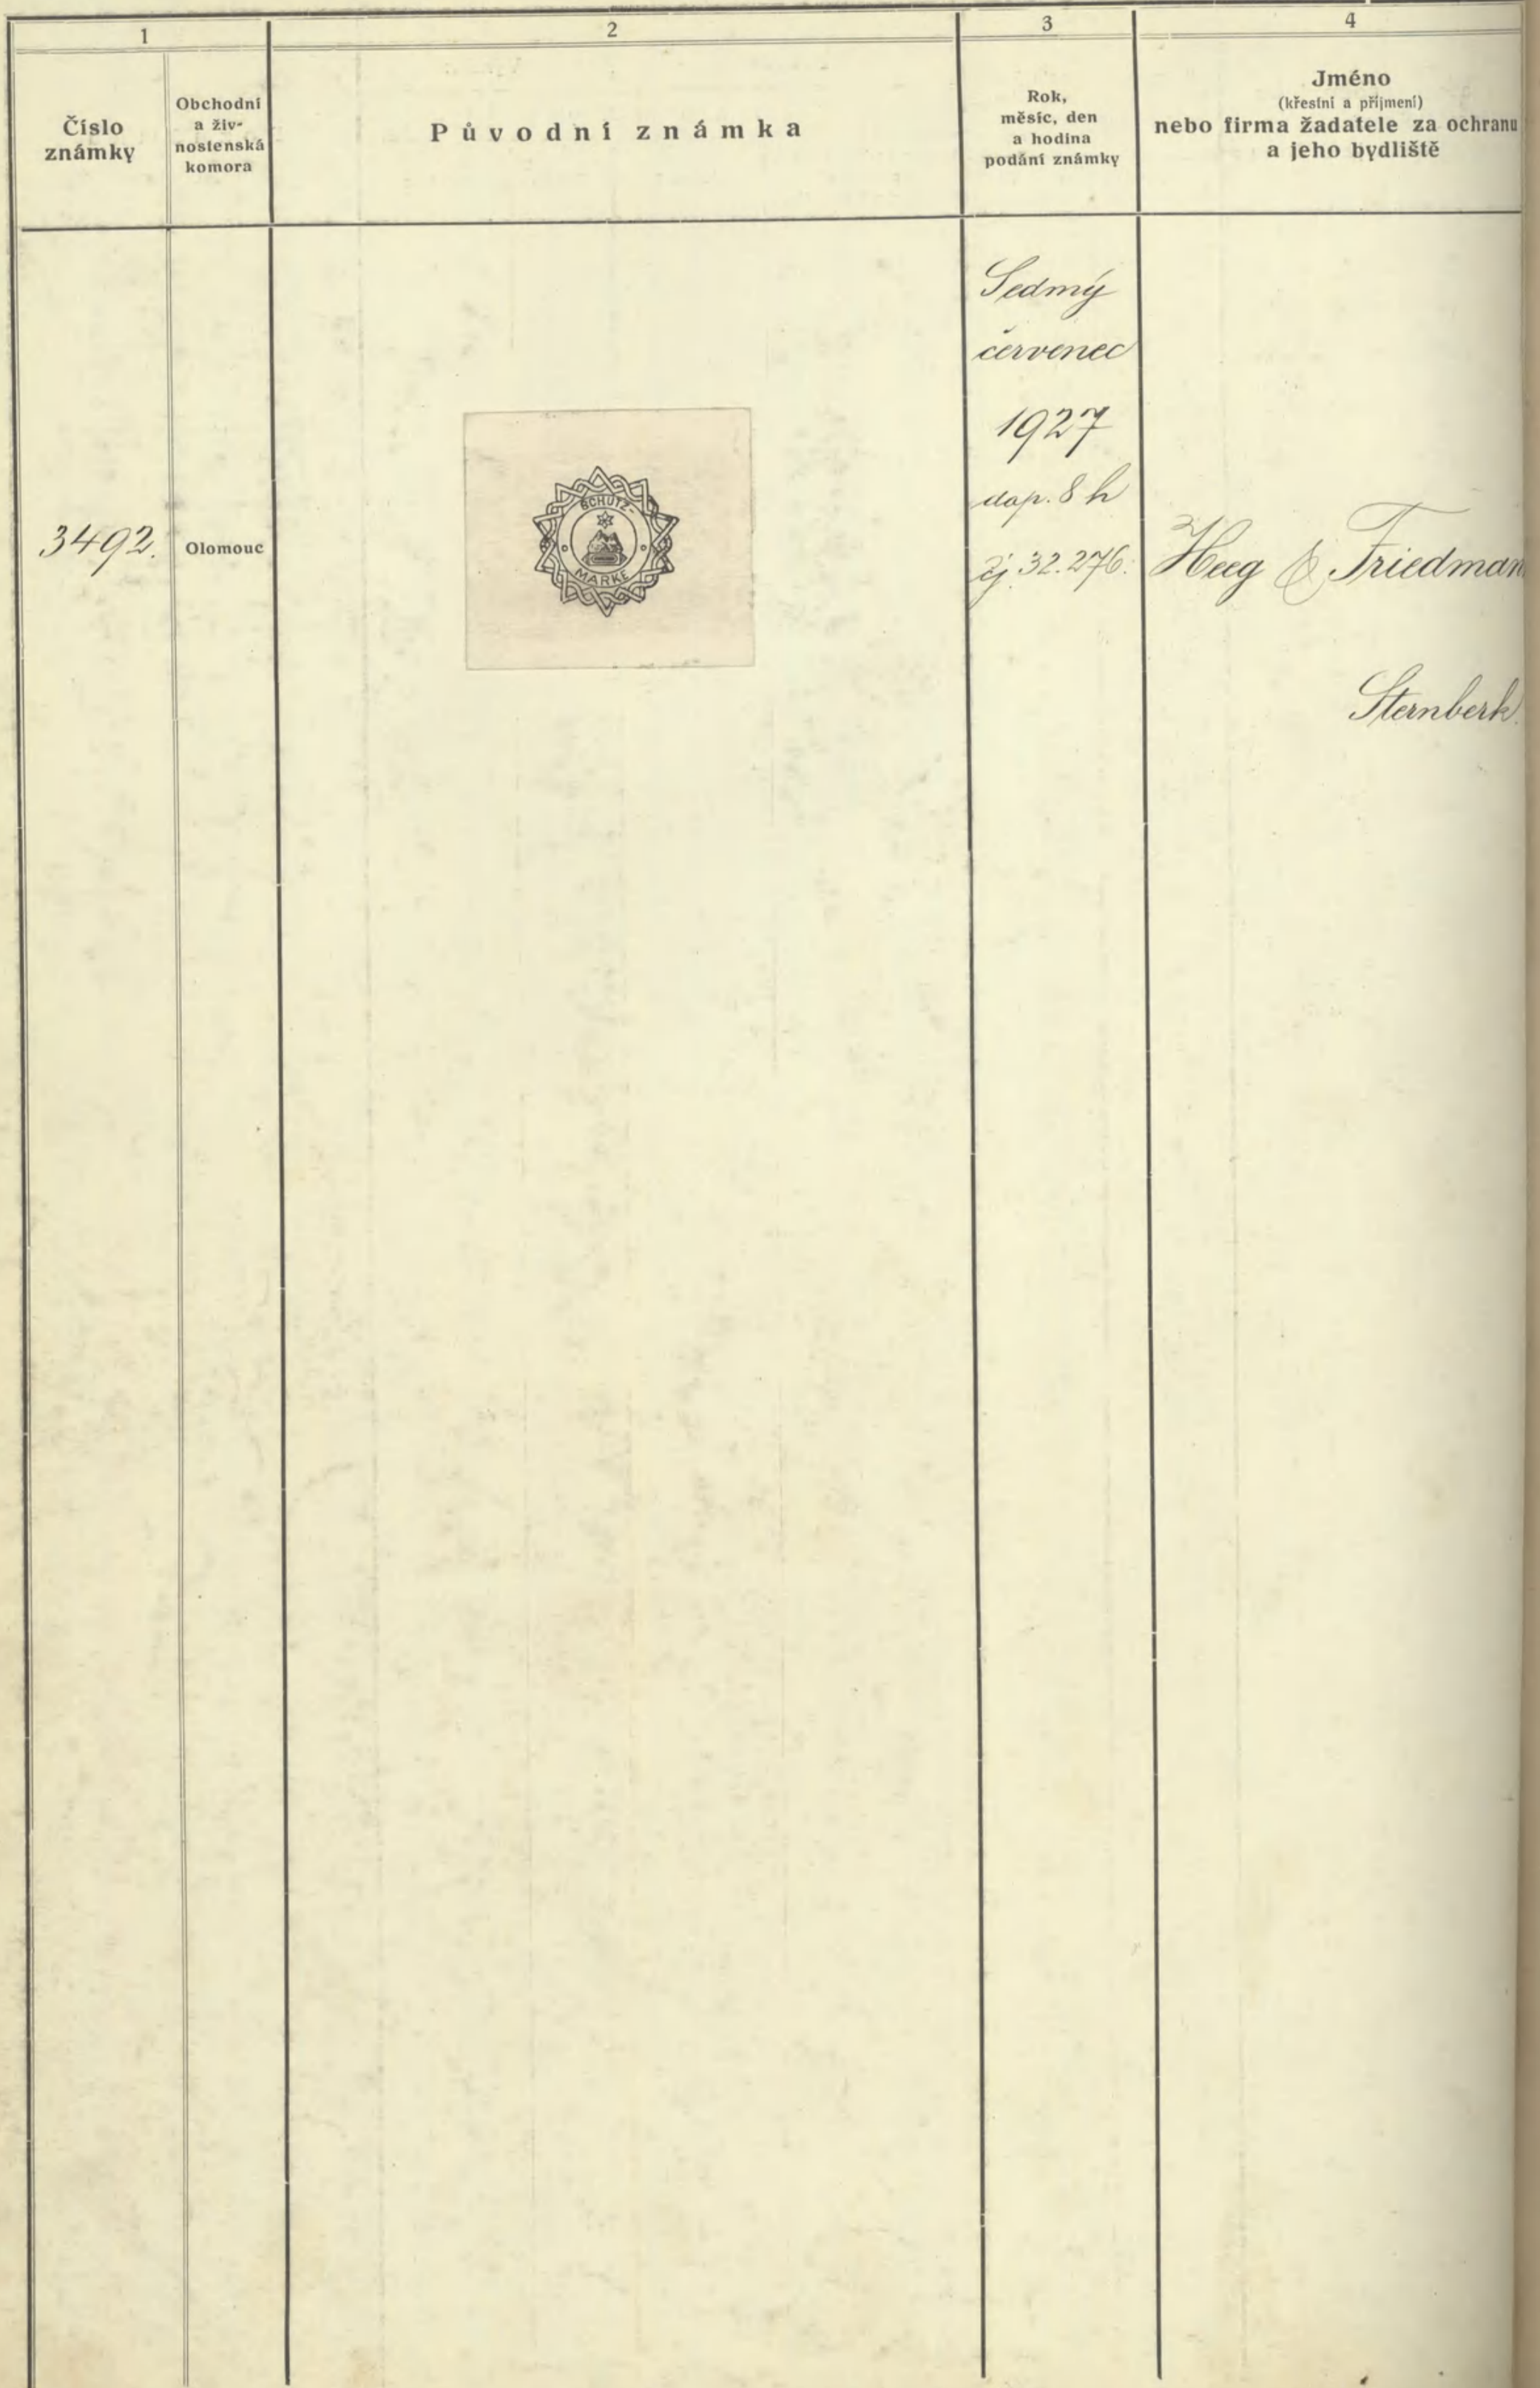 1
2
3
4
Číslo
známky
Obchodní
a živ-
nostenská
komora
Původní známka
Rok,
měsíc, den
a hodina
podání známky
Jméno
(křestní a příjmení)
nebo firma žadatele za ochranu
a jeho bydliště
3492.
Olomouc
SCHUTZ-
MARKE
Sedmý
červenec
1927
dop. 8 h
čj. 32.276.
Heeg & Friedmann
Sternberk.